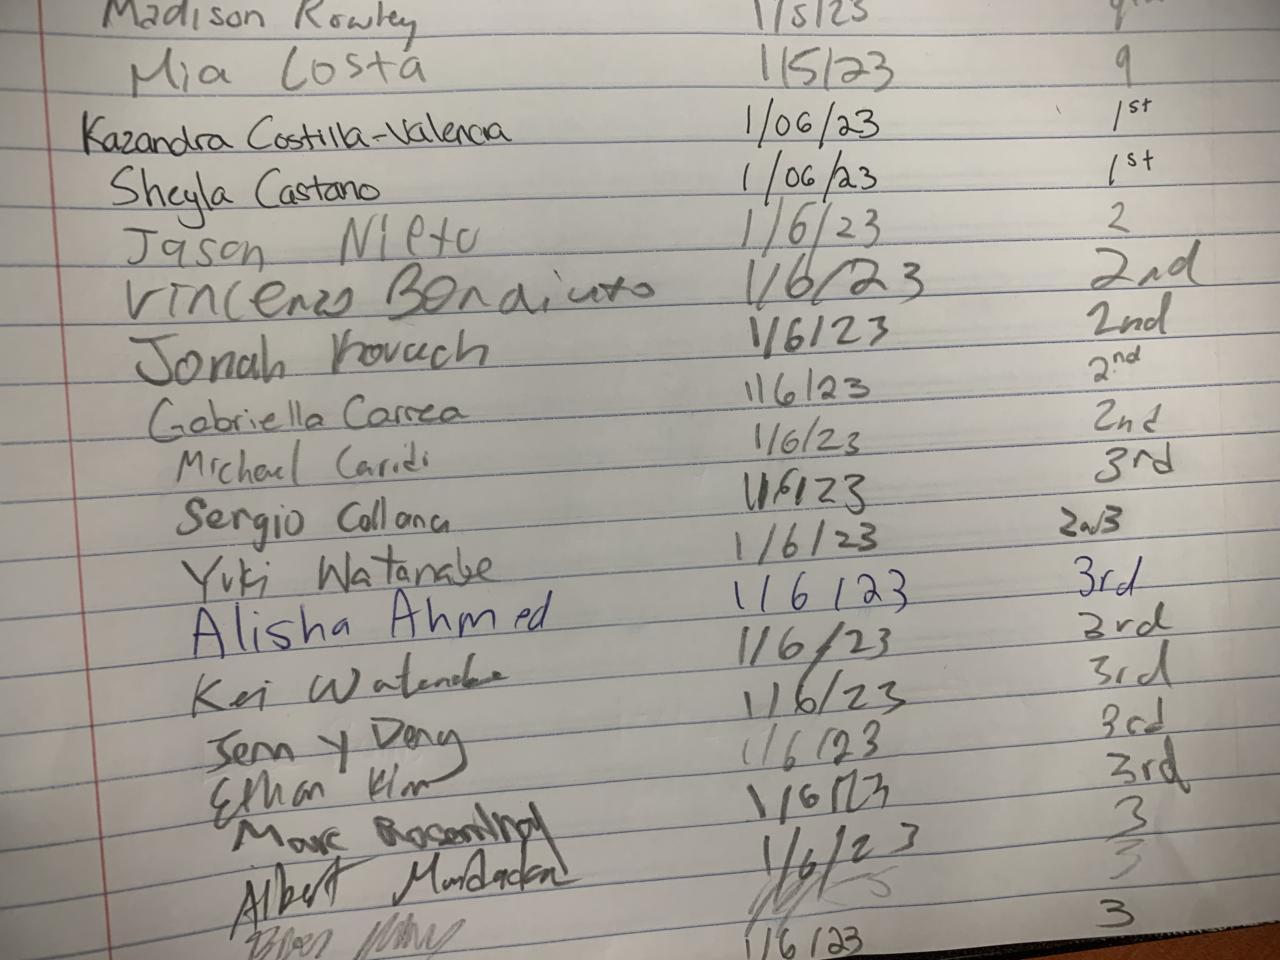 Madison Rowley 1/5/23
Mia Costa 1/5/23 9
Kazandra Costilla-Valencia 1/06/23 1st
Sheyla Castano 1/06/23 1st
Jason Nieto 1/6/23 2
Vincenzo Bonaiuto 1/6/23 2nd
Jonah Kovach 1/6/23 2nd
Gabriella Correa 1/6/23 2nd
Michael Caridi 1/6/23 2nd
Sergio Collana 1/6/23 3rd
Yuki Watanabe 1/6/23
Alisha Ahmed 1/6/23 3rd
Kei Watanabe 1/6/23 3rd
Jenn Y Deng 1/6/23 3rd
Ethan Kim 1/6/23 3rd
Marc 1/6/23 3rd
Albert 1/6/23 3
3
1/6/23 3